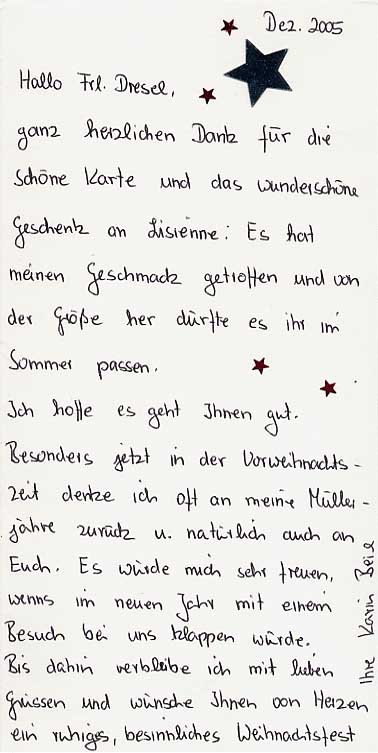 Dez. 2005
Hallo Frl. Dresel,
ganz herzlichen Dank für die
schöne Karte und das wunderschöne
Geschenk an Lisienne: Es hat
meinen Geschmack getroffen und von
der Größe her dürfte es ihr im
Sommer passen.
Ich hoffe es geht Ihnen gut.
Besonders jetzt in der Vorweihnachts-
zeit denke ich oft an meine Müller-
jahre zurück u. natürlich auch an
Euch. Es würde mich sehr freuen,
wenns im neuen Jahr mit einem
Besuch bei uns klappen würde.
Bis dahin verbleibe ich mit lieben
Grüssen und wünsche Ihnen von Herzen
ein ruhiges, besinnliches Weihnachtsfest
Ihre Karin Beie